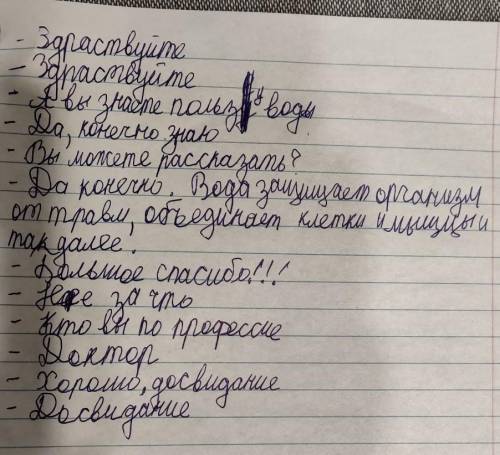 - Здраствуйте
- Здраствуйте
- А вы знаете пользу воды
- Да, конечно знаю
- Вы можете рассказать?
- Да конечно. Вода защищает организм
от травм, объединает клетки и мышцы и
так далее.
- Большое спасибо!!!
- Не за что
- Кто вы по профессие
- Доктор
- Хорошо, досвидание
- Досвидание